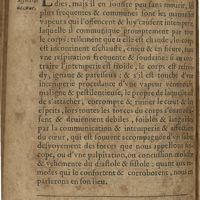 dies, mais il en souffre peu sans mourir, les
plus frequentes & communes sont les mauvaises
vapeurs qui l'offencent & luy causent intemperie
laquelle il communique promptement par tout
le corps: tellement que si elle est chaude, le corps
est incontinent eschauffé, émeu & en fieure, suit
une respiration frequente & soudaine: si au con-
traire l'intemperie est froide, le corps est
dy, ignaue & paresseux: & s'il est touché d'une
intemperie procedante d'une vapeur venimeuse,
maligne & pestilencieuse, le propre de laquelle est
de s'attacher, corrompre & ruiner le cœur & les
esprits, lors toutes les forces du corps s'éuanoüis-
sent & deuiennent debiles, foibles & languides
par la communication & intemperie & affection
du cœur, qui est souuent accompagnée d'un debil
& desvoyement des forces que nous appellons sin-
cope, ou d'une palpitation, ou chaleur molaste
& vehemente du diastole & sistole: quant aux re-
medes qui le confortent & corroborent, nous en
parlerons en son lieu.